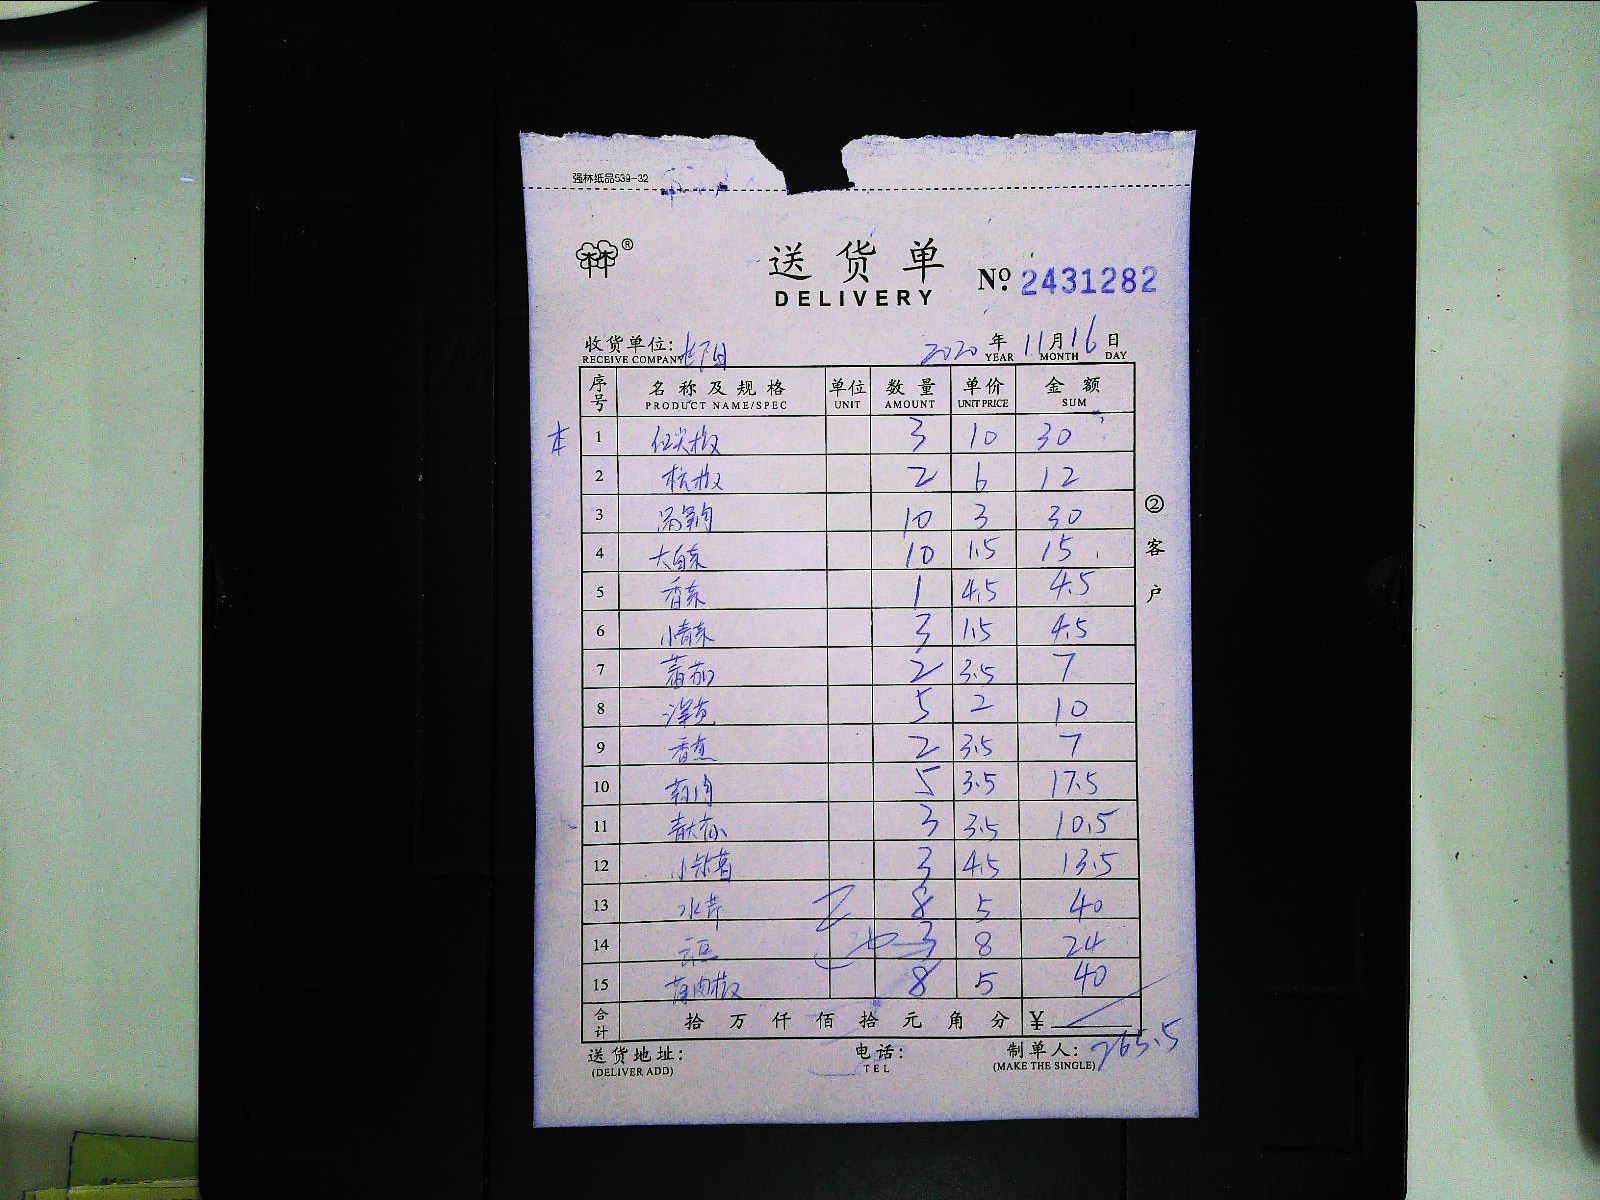 强林纸品539-32
®
送货单
DELIVERY
No. 2431282
收货单位:
RECEIVE COMPANY
2020 年 11 月 16 日
YEAR MONTH DAY
序号 名称及规格 单位 数量 单价 金额
PRODUCT NAME/SPEC UNIT AMOUNT UNIT PRICE SUM
1 红尖椒 3 10 30
2 杭椒 2 6 12
3 10 3 30
4 大白菜 10 1.5 15
5 香菜 1 4.5 4.5
6 小青菜 3 1.5 4.5
7 蕃茄 2 3.5 7
8 洋芋 5 2 10
9 香葱 2 3.5 7
10 5 3.5 17.5
11 3 3.5 10.5
12 小米葱 3 4.5 13.5
13 水芹 8 5 40
14 云豆 3 8 24
15 薄肉椒 8 5 40
合计 拾 万 仟 佰 拾 元 角 分 ¥
265.5
送货地址: 电话: 制单人:
(DELIVER ADD) TEL (MAKE THE SINGLE)
② 客户